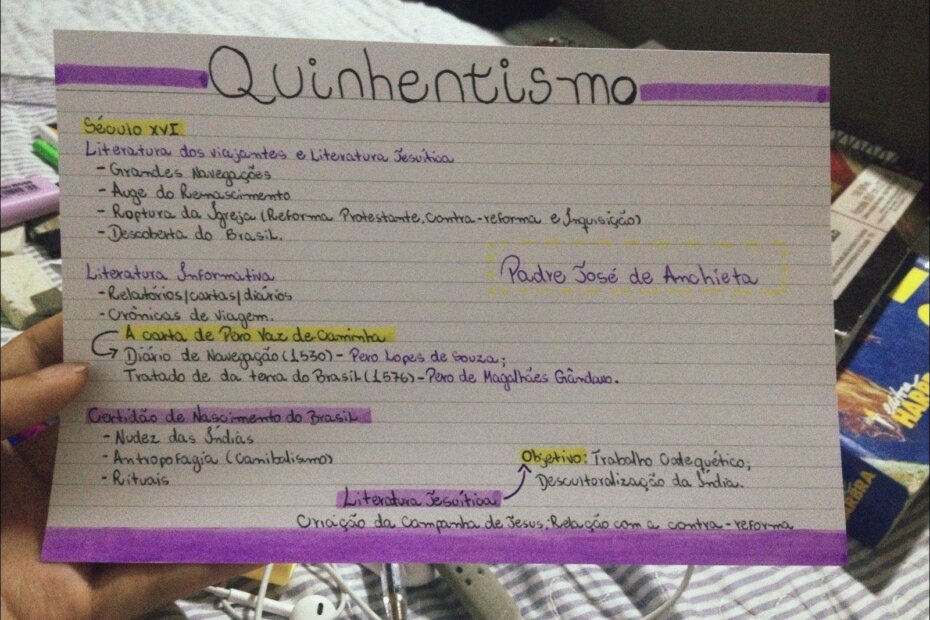 Quinhentismo
Século XVI
Literatura dos viajantes e Literatura Jesuítica
- Grandes Navegações
- Auge do Renascimento
- Roptura da Igreja (Reforma Protestante, Contra-reforma e Inquisição)
- Descoberta do Brasil.
Padre José de Anchieta
Literatura Informativa
- Relatórios/cartas/diários
- Crônicas de viagem.
A carta de Pero Vaz de Caminha
Diário de Navegação (1530) - Pero Lopes de Souza;
Tratado de da terra do Brasil (1576) - Pero de Magalhães Gândavo.
Certidão de Nascimento do Brasil
- Nudez das Índias
- Antropofagia (Canibalismo)
- Rituais
Objetivo: Trabalho Catequético;
Desculteralização da Índia.
Literatura Jesuítica
Criação da Campanha de Jesus; Relação com a contra-reforma